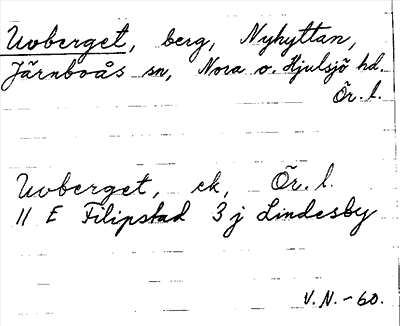 Uvberget, berg, Nyhyttan,
Järnboås sn, Nora o. Hjulsjö hd.
Ör. l.
Uvberget, ek, Ör. l.
11 E Filipstad 3 j Lindesby
V. N. - 60.